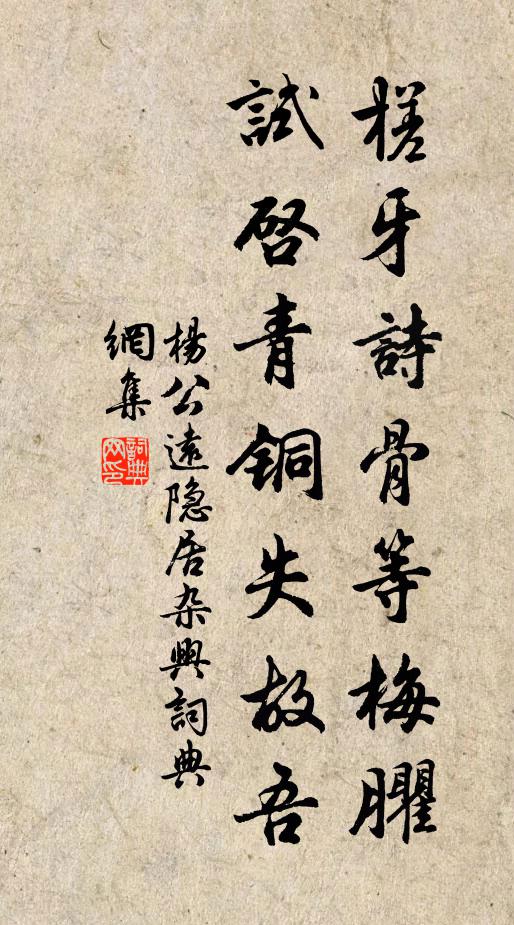 槎牙詩骨等梅臞
試啓青銅失故吾
楊公遠隐居杂興詞典
網集
詞典
网印